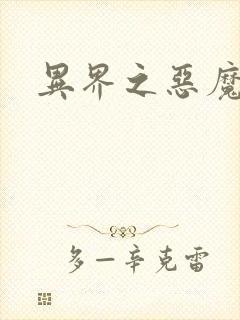 異界之惡魔
多一辛克雷